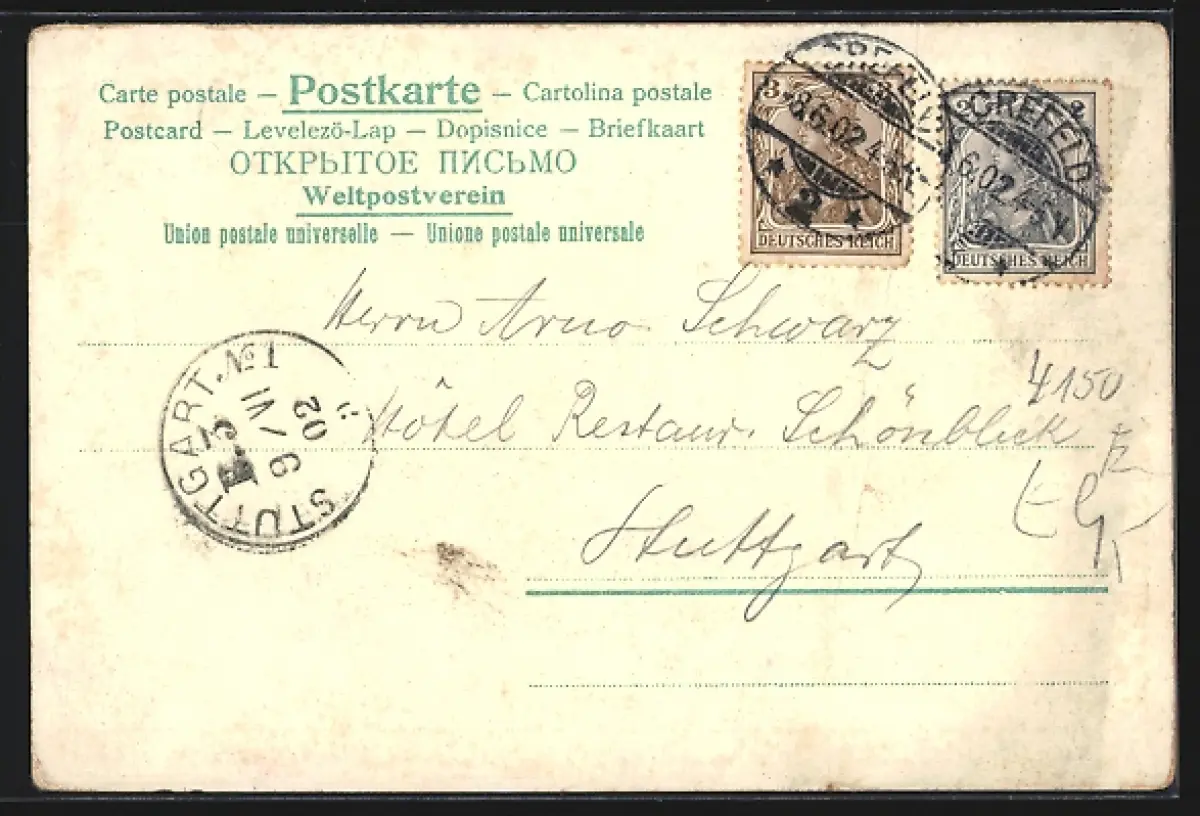 Carte postale — Postkarte — Cartolina postale
Postcard — Levelező-Lap — Dopisnice — Briefkaart
ОТКРЫТОЕ ПИСЬМО
Weltpostverein
Union postale universelle — Unione postale universale
3
DEUTSCHES REICH
CREFELD
8.6.02.4-5
* 2 *
2 2
DEUTSCHES REICH
CREFELD
6.02.4-5
Herrn Arno Schwarz
Hôtel Restaur. Schönblick
Stuttgart
4150
STUTTGART. No 1
9/VI
02